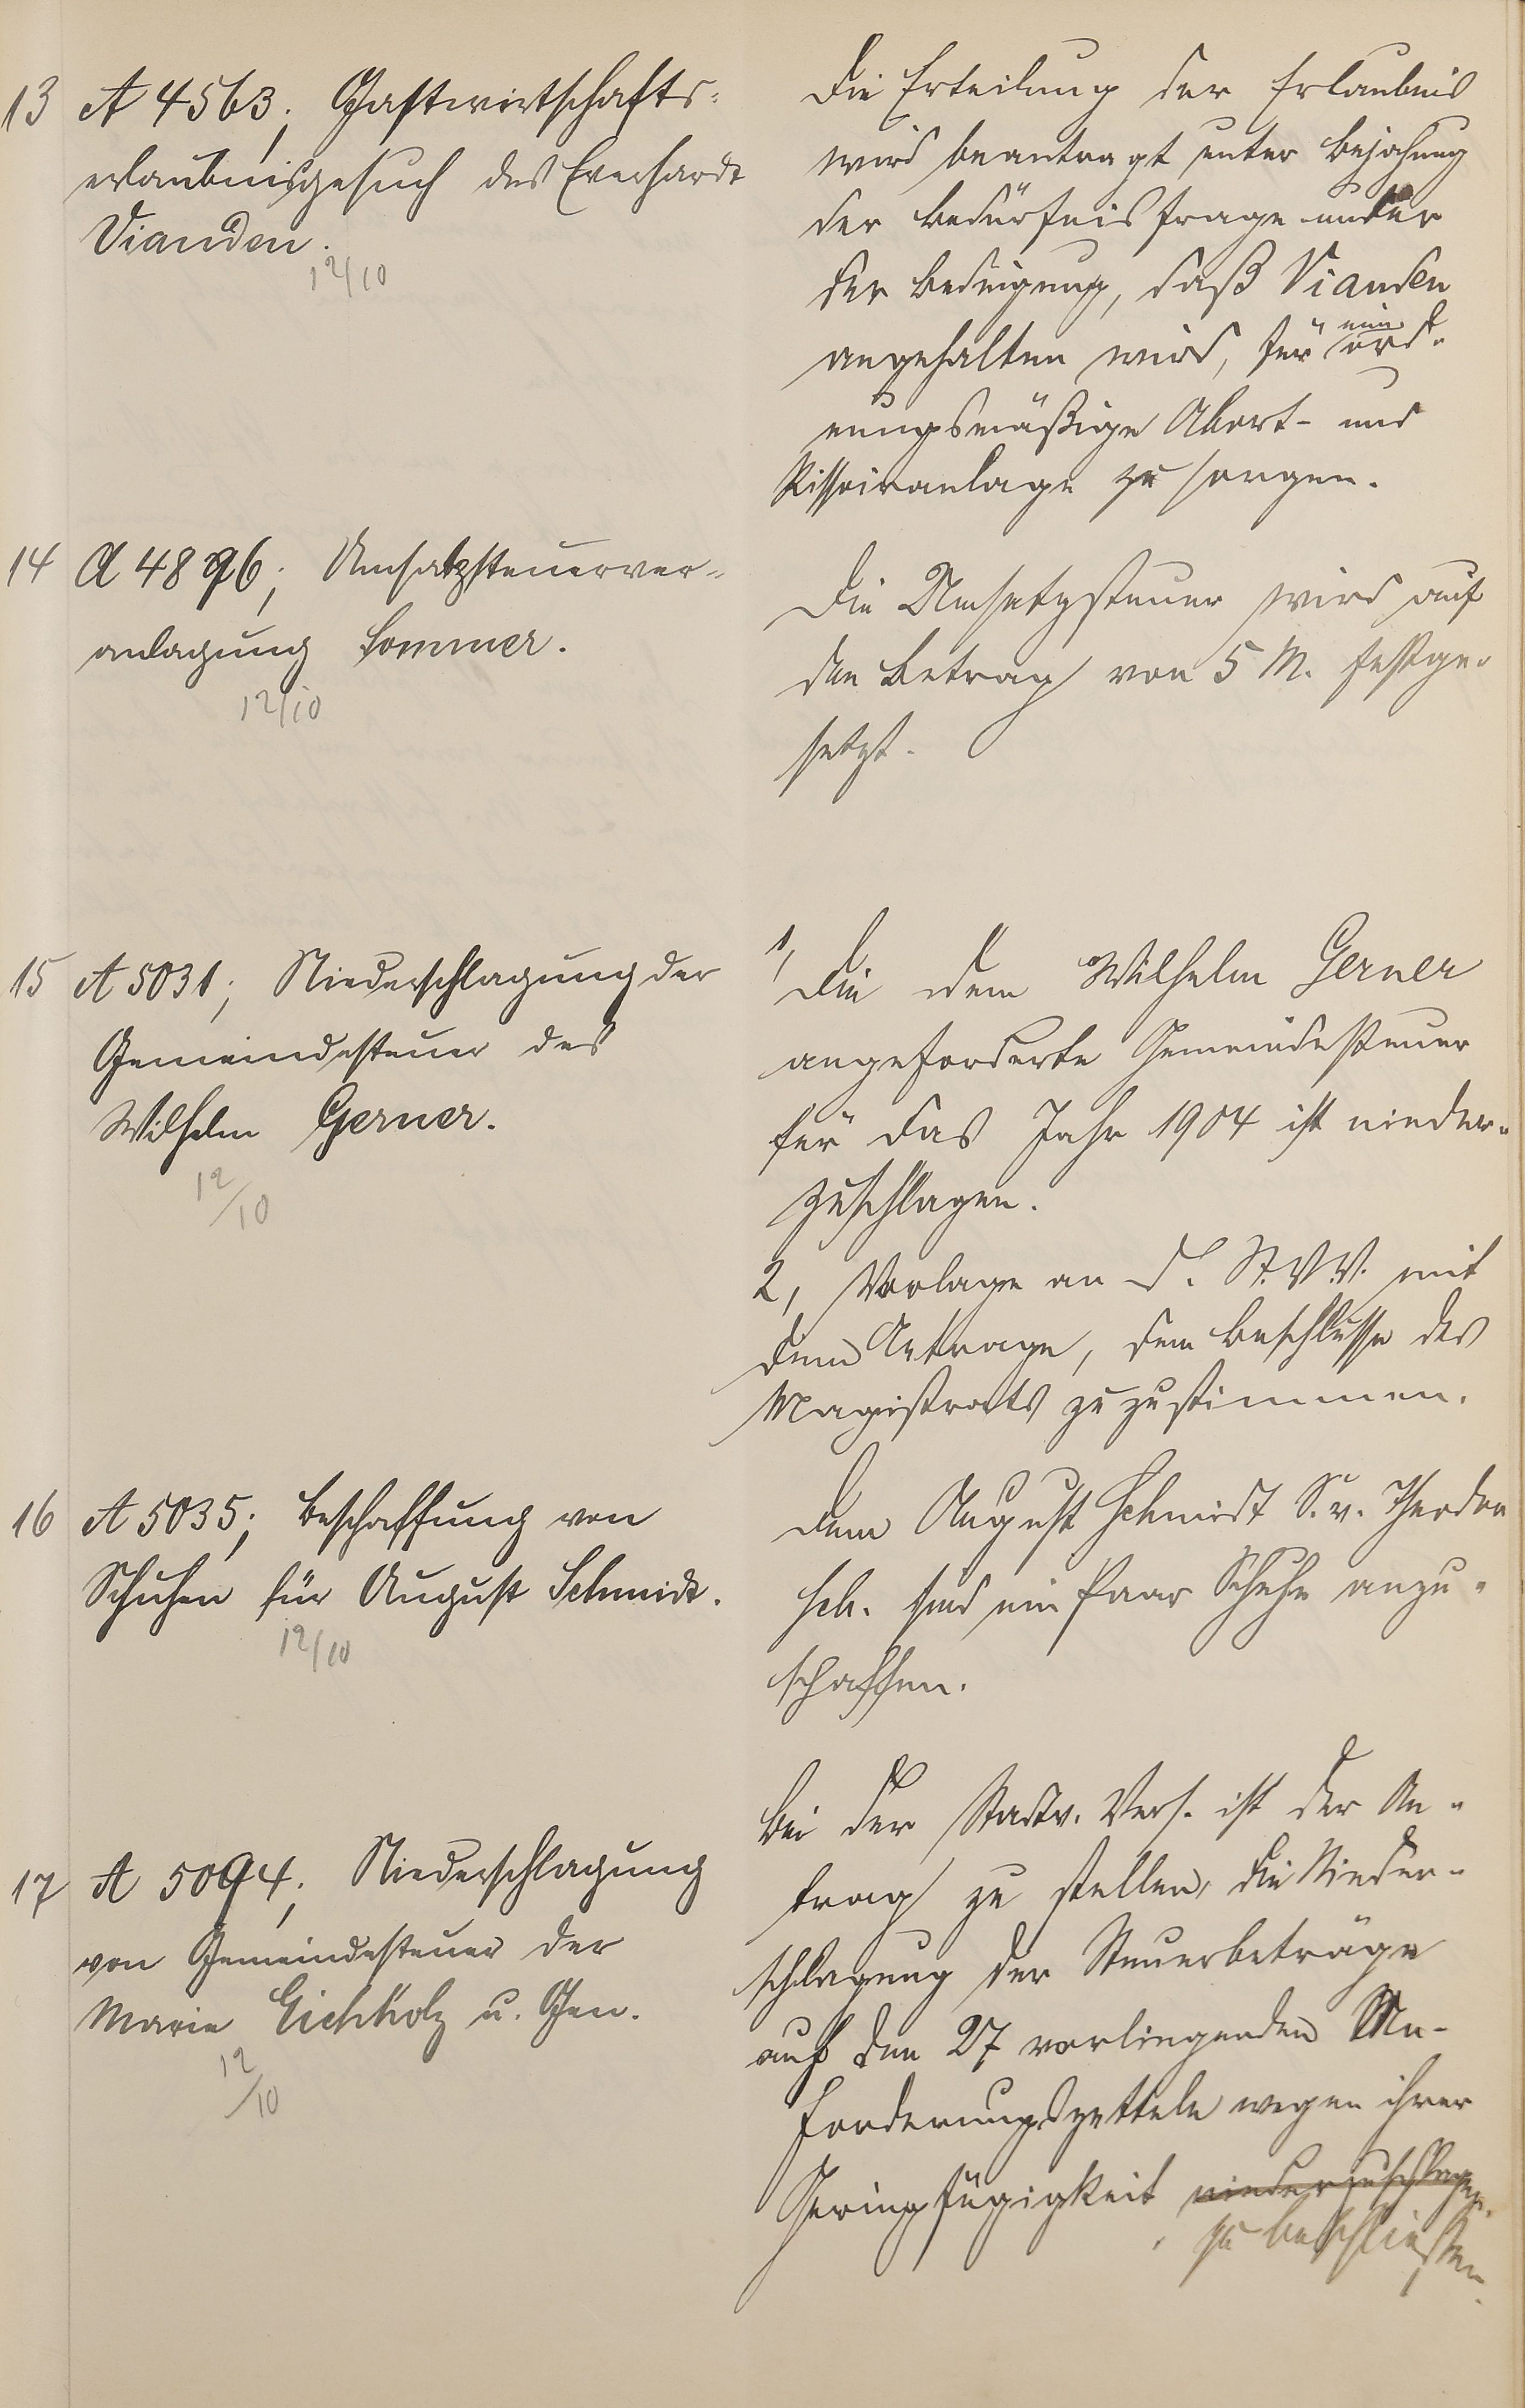 13 A 4563; Gastwirtschafts-
erlaubnisgesuch des Everhardt
Vianden.
12/10
Die Erteilung der Erlaubnis
wird beantragt unter Bejahung
der Bedürfnisfrage unter
der Bedingung, daß Vianden
angehalten wird, für eine ord-
nungsmäßige Abort- und
Pissoiranlage zu sorgen.
14 A 4896; Umsatzsteuerver-
anlagung Sommer.
12/10
Die Umsatzsteuer wird auf
den Betrag von 5 M. festge-
setzt.
15 A 5031; Niederschlagung der
Gemeindesteuer des
Wilhelm Gerner.
12/10
1, Die dem Wilhelm Gerner
angeforderte Gemeindesteuer
für das Jahr 1904 ist nieder-
zuschlagen.
2, Vorlage an d. St.V.V. mit
dem Antrage, dem Beschlusse des
Magistrats zuzustimmen.
16 A 5035; Beschaffung von
Schuhen für August Schmidt.
12/10
Dem August Schmidt S. v. Theodor
Sch. sind ein Paar Schuhe anzu-
schaffen.
17 A 5094; Niederschlagung
von Gemeindesteuer der
Marie Eichholz u. Gen.
12/10
Bei der Stadtv. Vers. ist der An-
trag zu stellen, die Nieder-
schlagung der Steuerbeträge
auf den 27 vorliegenden An-
forderungszetteln wegen ihrer
Geringfügigkeit niederzuschlagen.
zu beschließen.